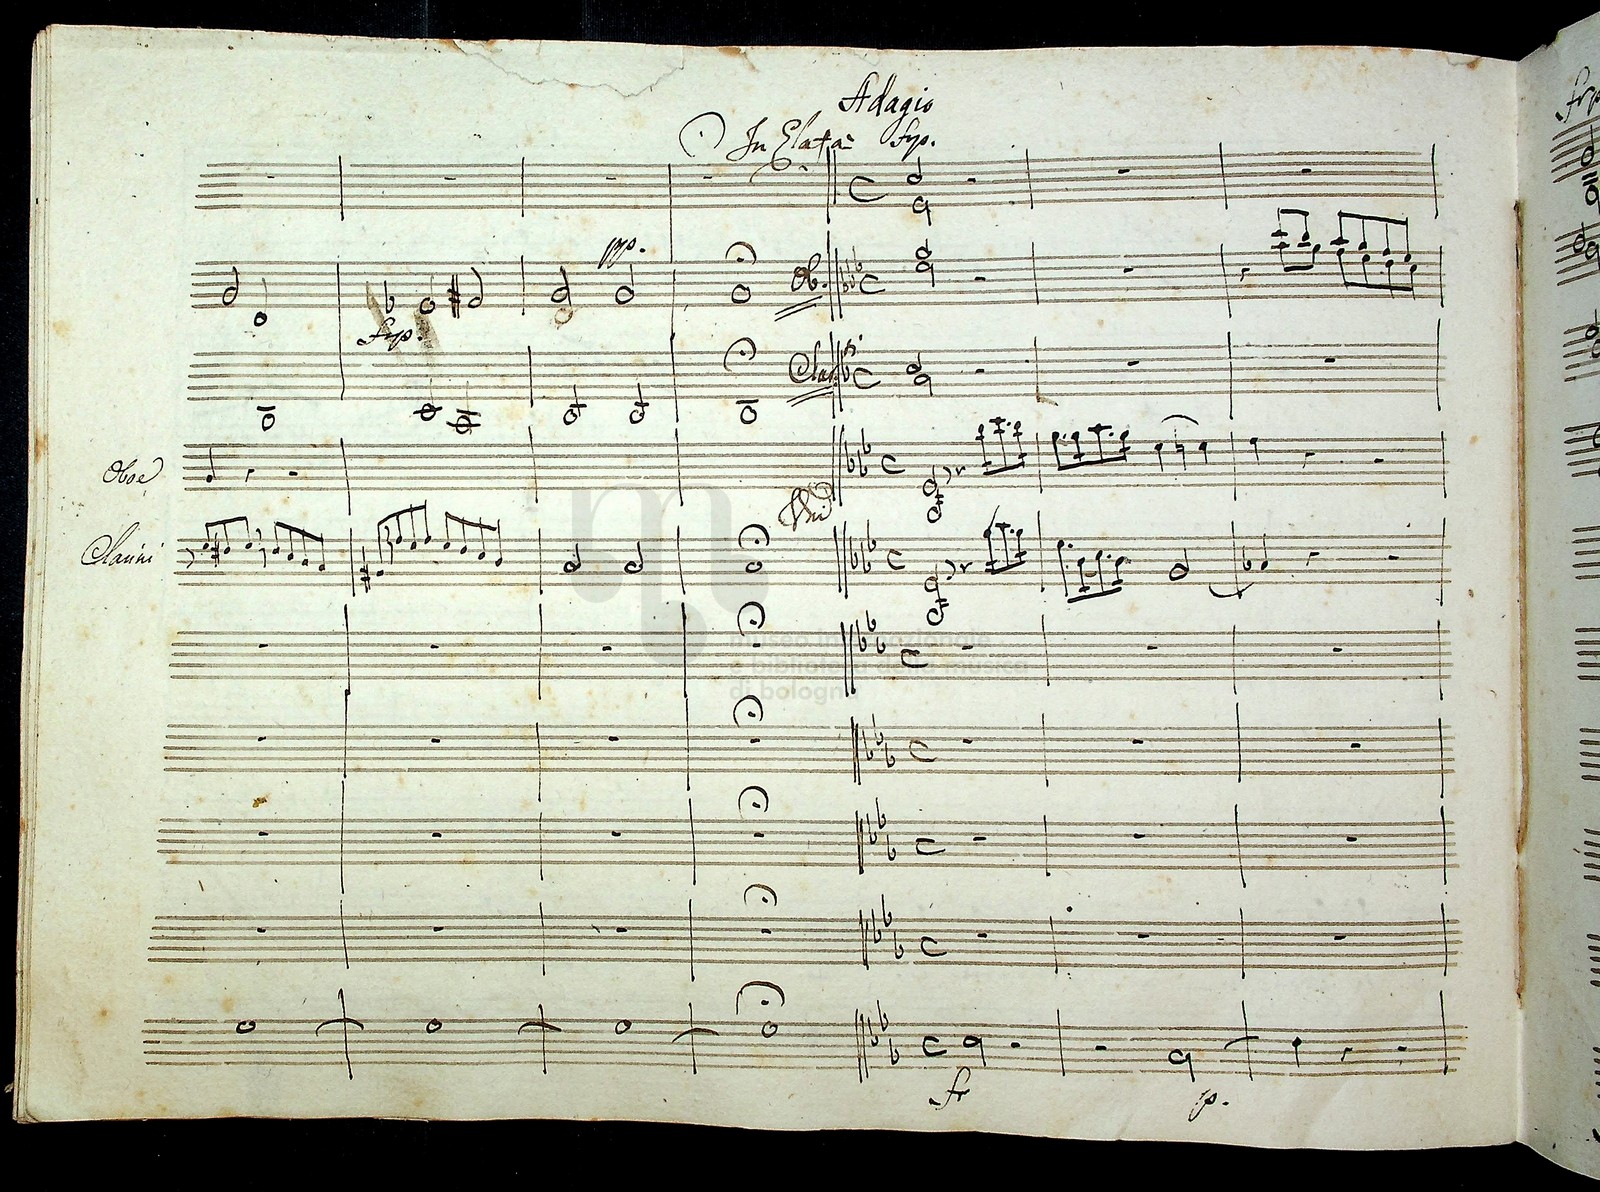 Adagio
In Elafà fp.
pp.
Ob.
fp.
Clar.
Oboe
Vni
Clarini
museo internazionale
e biblioteca della musica
di bologna
f p.